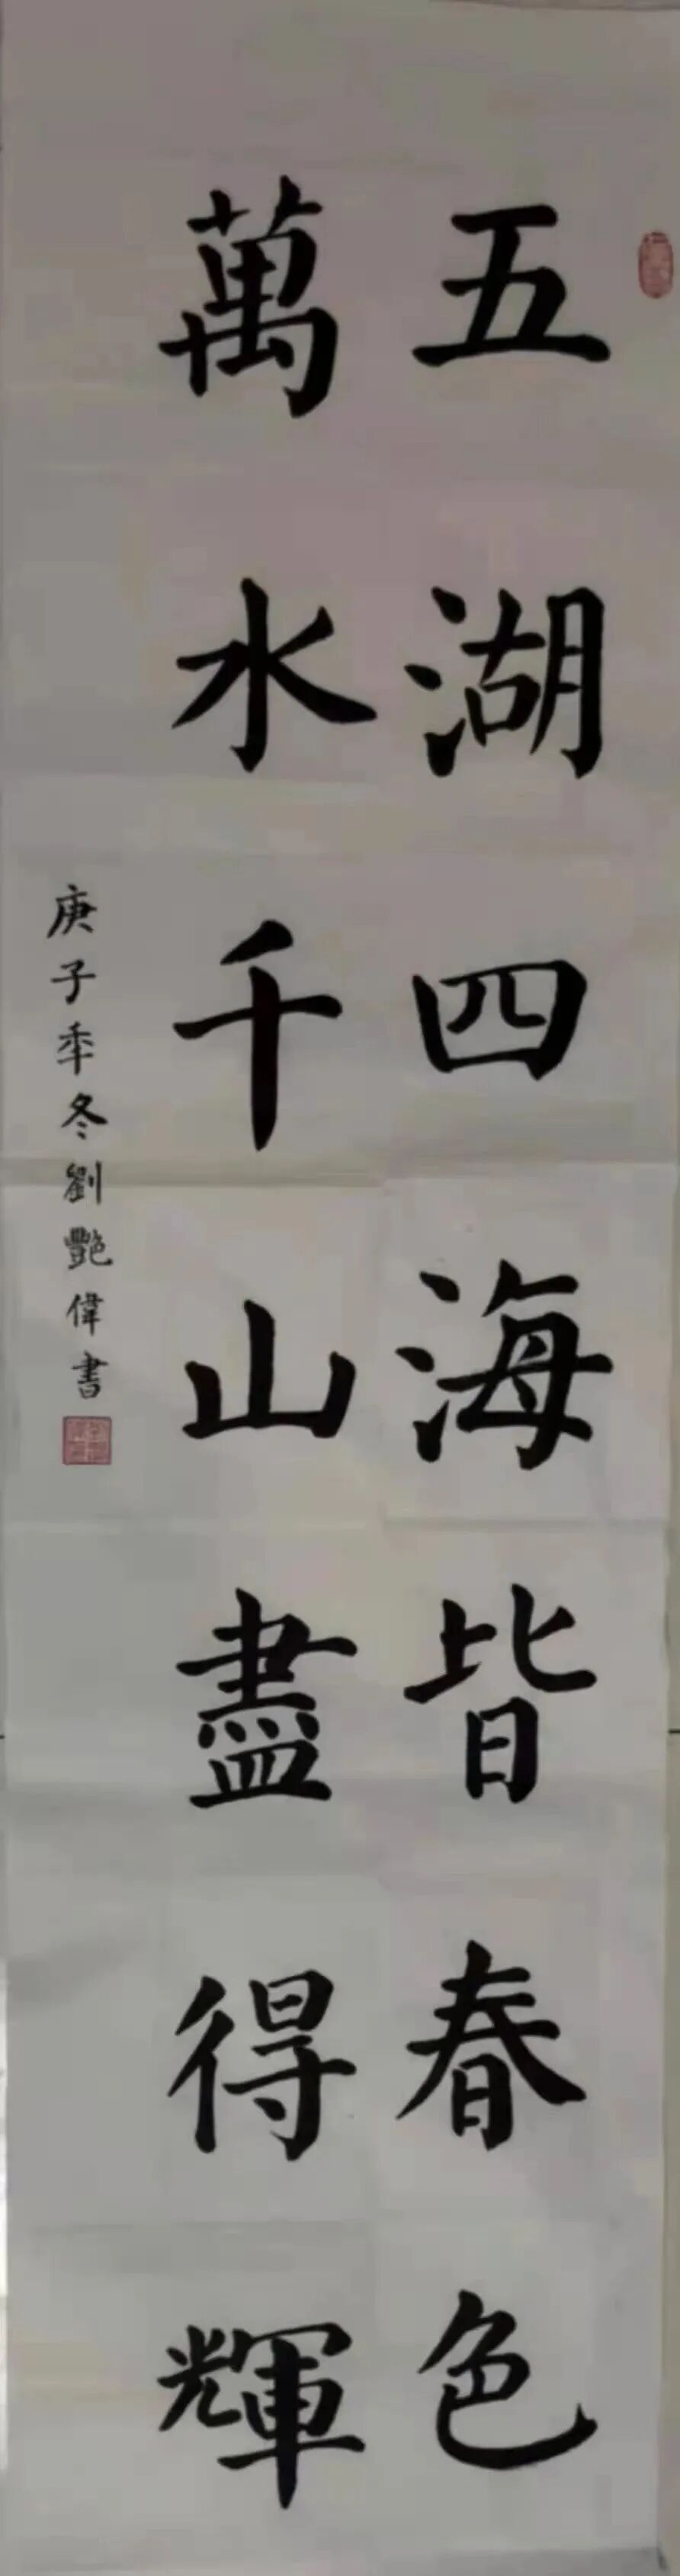 五湖四海皆春色
萬水千山盡得輝
庚子季冬劉艷偉書